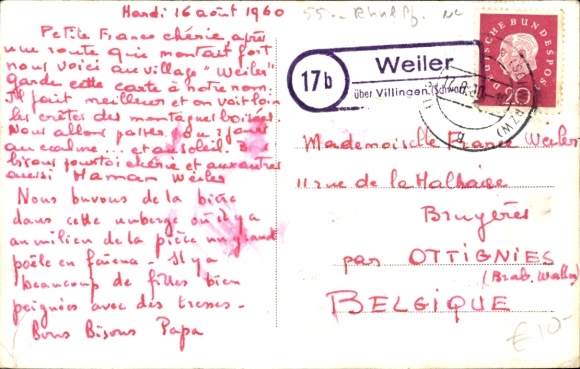 Mardi 16 août 1960
Petite France chérie après
une route qui montait fort
nous voici au village "Weiler"
garde cette carte à notre nom.
Il fait meilleur et on voit loin
les crêtes des montagnes boisées
Nous allons passer 1 ou 2 jours
au calme... et au soleil.
bisous pour toi chérie et aux autres
aussi Maman Weiler
Nous buvons de la bière
dans cette auberge où il y a
au milieu de la pièce un grand
poêle en faïence - Il y a
beaucoup de filles bien
peignées avec des tresses -
Bons Bisous Papa
55 -- Rhld Pf. NL
17b
Weiler
über Villingen (Schwarzw)
DEUTSCHE BUNDESPOST
20
Mademoiselle France Weiler
11 rue de la Halbaise
Bruyères
par OTTIGNIES
(Brab. Wallon)
BELGIQUE
€10-